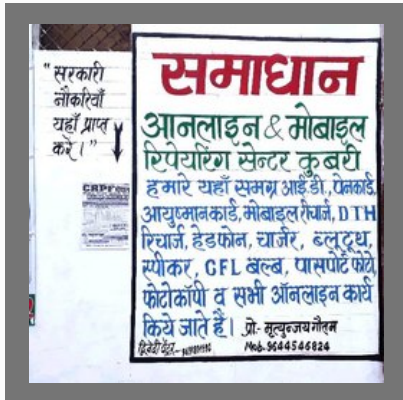 “सरकारी
नौकरियाँ
यहाँ प्राप्त
करें।”
CRPF
समाधान
आनलाइन & मोबाइल
रिपेयरिंग सेन्टर कुबरी
हमारे यहाँ समग्र आई.डी., पेनकार्ड,
आयुष्मानकार्ड, मोबाइल रीचार्ज, DTH
रिचार्ज, हेडफोन, चार्जर, ब्लूटूथ,
स्पीकर, CFL बल्ब, पासपोर्ट फोटो,
फोटोकॉपी व सभी ऑनलाइन कार्य
किये जाते हैं। प्रो.- मृत्युन्जय गौतम
Mob. 9644546824